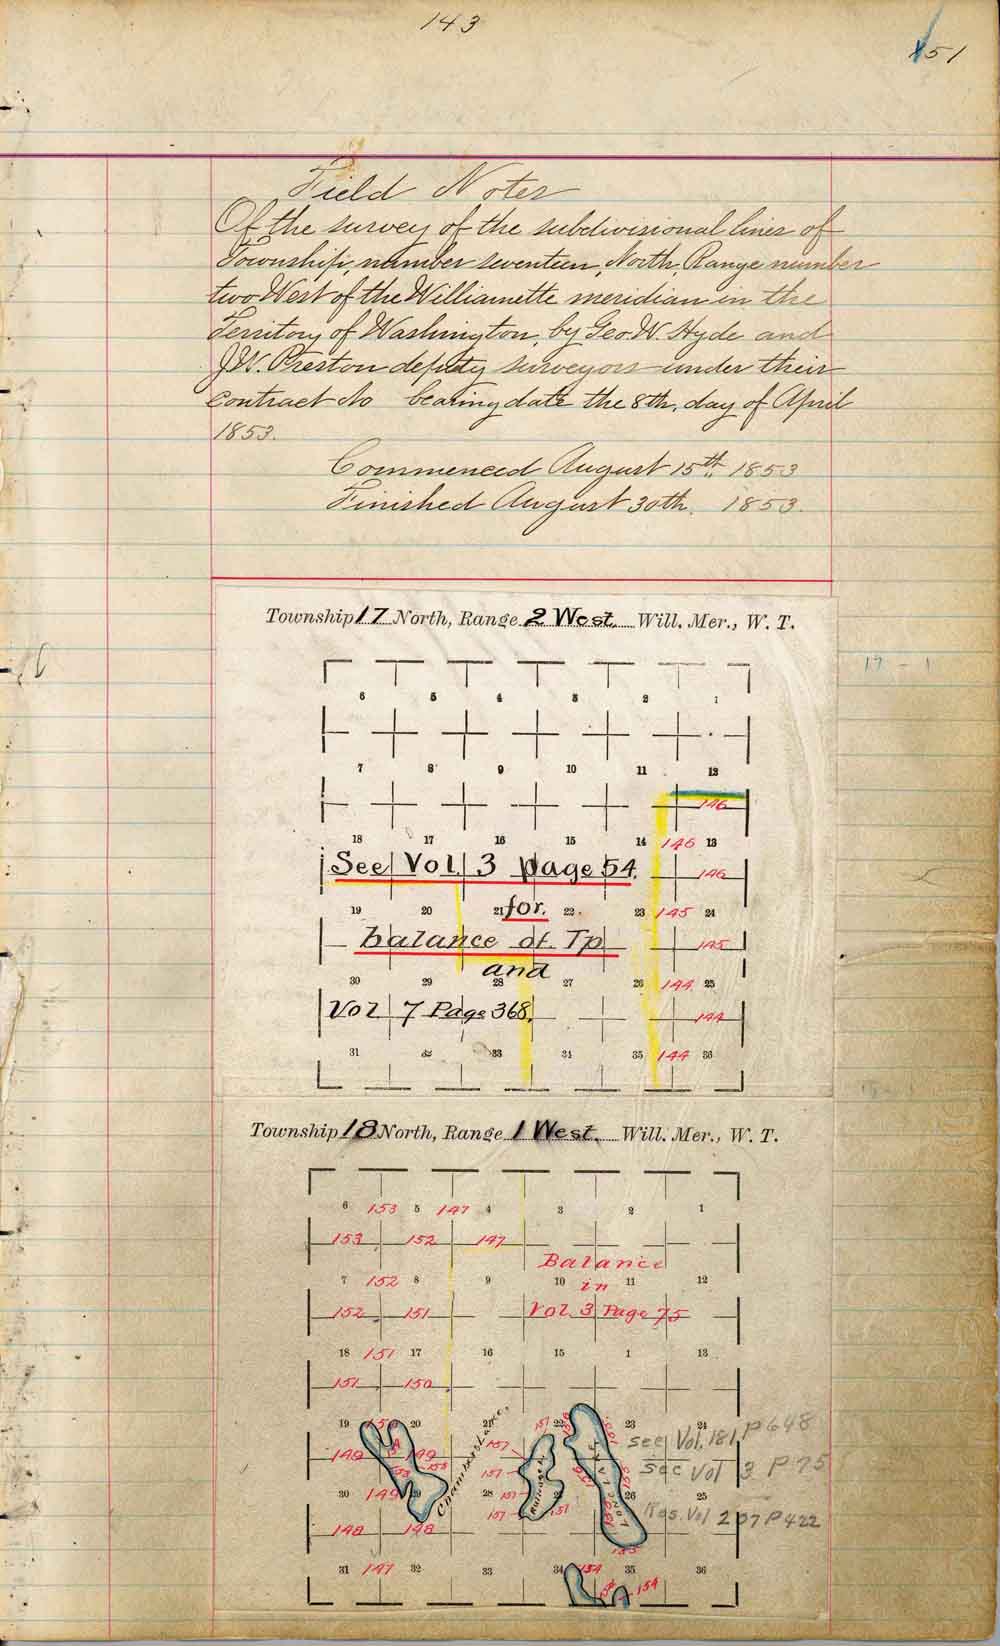 143
51
Field Notes
Of the survey of the subdivisional lines of
Township, number seventeen, North, Range number
two West of the Williamette meridian in the
Territory of Washington, by Geo. W. Hyde and
J.W. Preston deputy surveyors under their
contract No bearing date the 8th. day of April
1853.
Commenced August 15th. 1853
Finished August 30th. 1853.
Township 17 North, Range 2 West. Will. Mer., W. T.
17 - 1
6 5 4 3 2 1
7 8 9 10 11 12
146
18 17 16 15 14 146 13
See Vol. 3 page 54 146
for
19 20 21 22 23 145 24
balance of Tp 145
and
30 29 28 27 26 144 25
Vol 7 Page 368. 144
31 32 33 34 35 144 36
Township 18 North, Range 1 West. Will. Mer., W. T.
6 153 5 147 4 3 2 1
153 152 147
Balance
7 152 8 9 10 in 11 12
152 151 Vol. 3 Page 75
18 151 17 16 15 1 13
151 150
19 150 20 21 151 22 156 155 23 24
see Vol. 181, P 648
149 A 149 Chambers Lake, 157
153 153 157 156 155 see Vol 3 P 75
30 149 29 28 157 27 LONG LAKE 26 25
157 151 155 Res. Vol 207 P 422
148 148 155
31 147 32 33 34 154 35 36
154 154